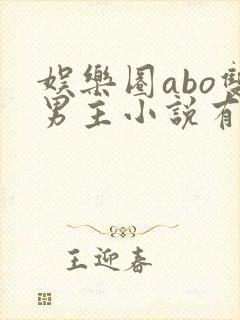 娛樂圈abo雙
男主小說有
王迎春